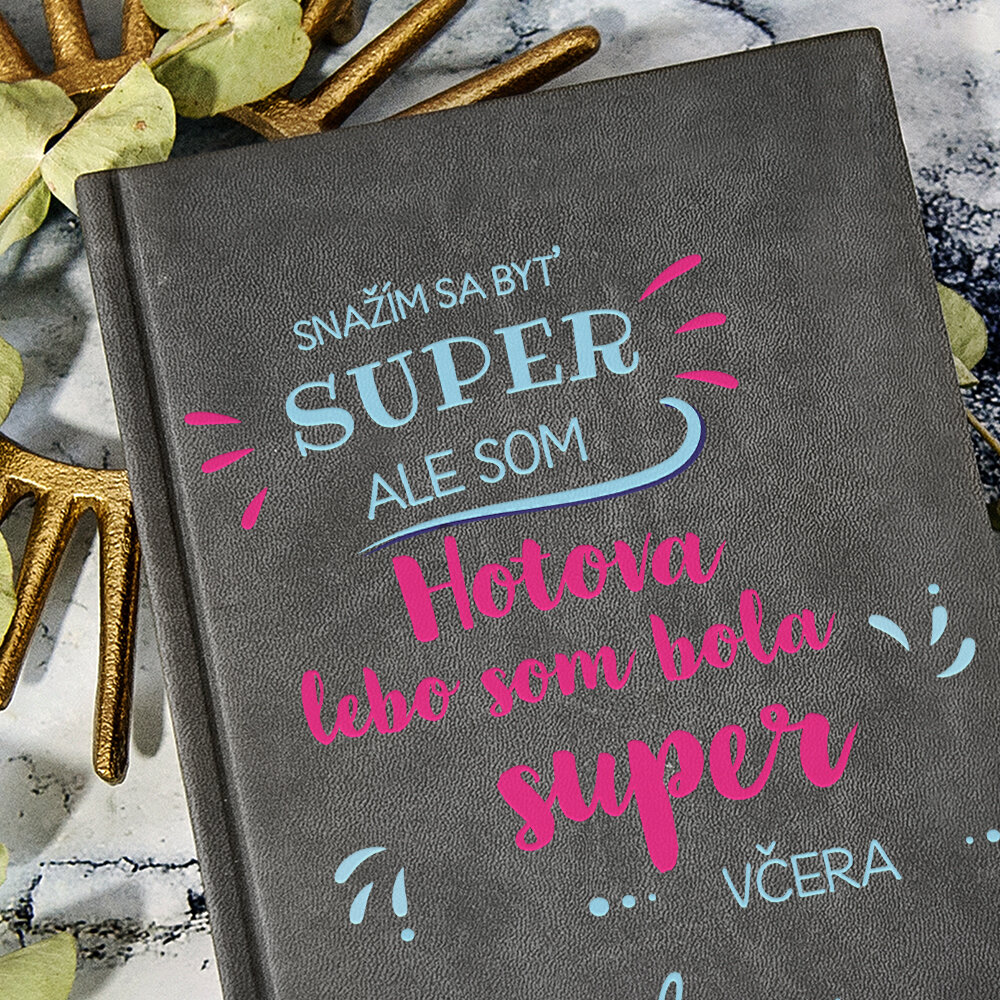 SNAŽÍM SA BYŤ
SUPER
ALE SOM
Hotova
lebo som bola
super
VČERA